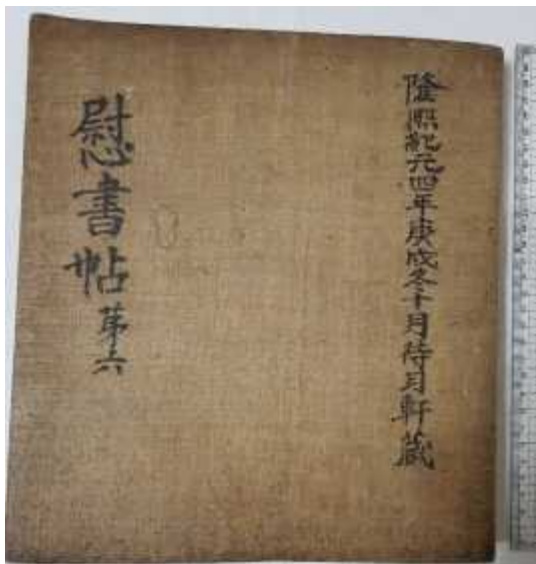 隆熙紀元四年庚戌冬十月待月軒藏
慰書帖 苐六